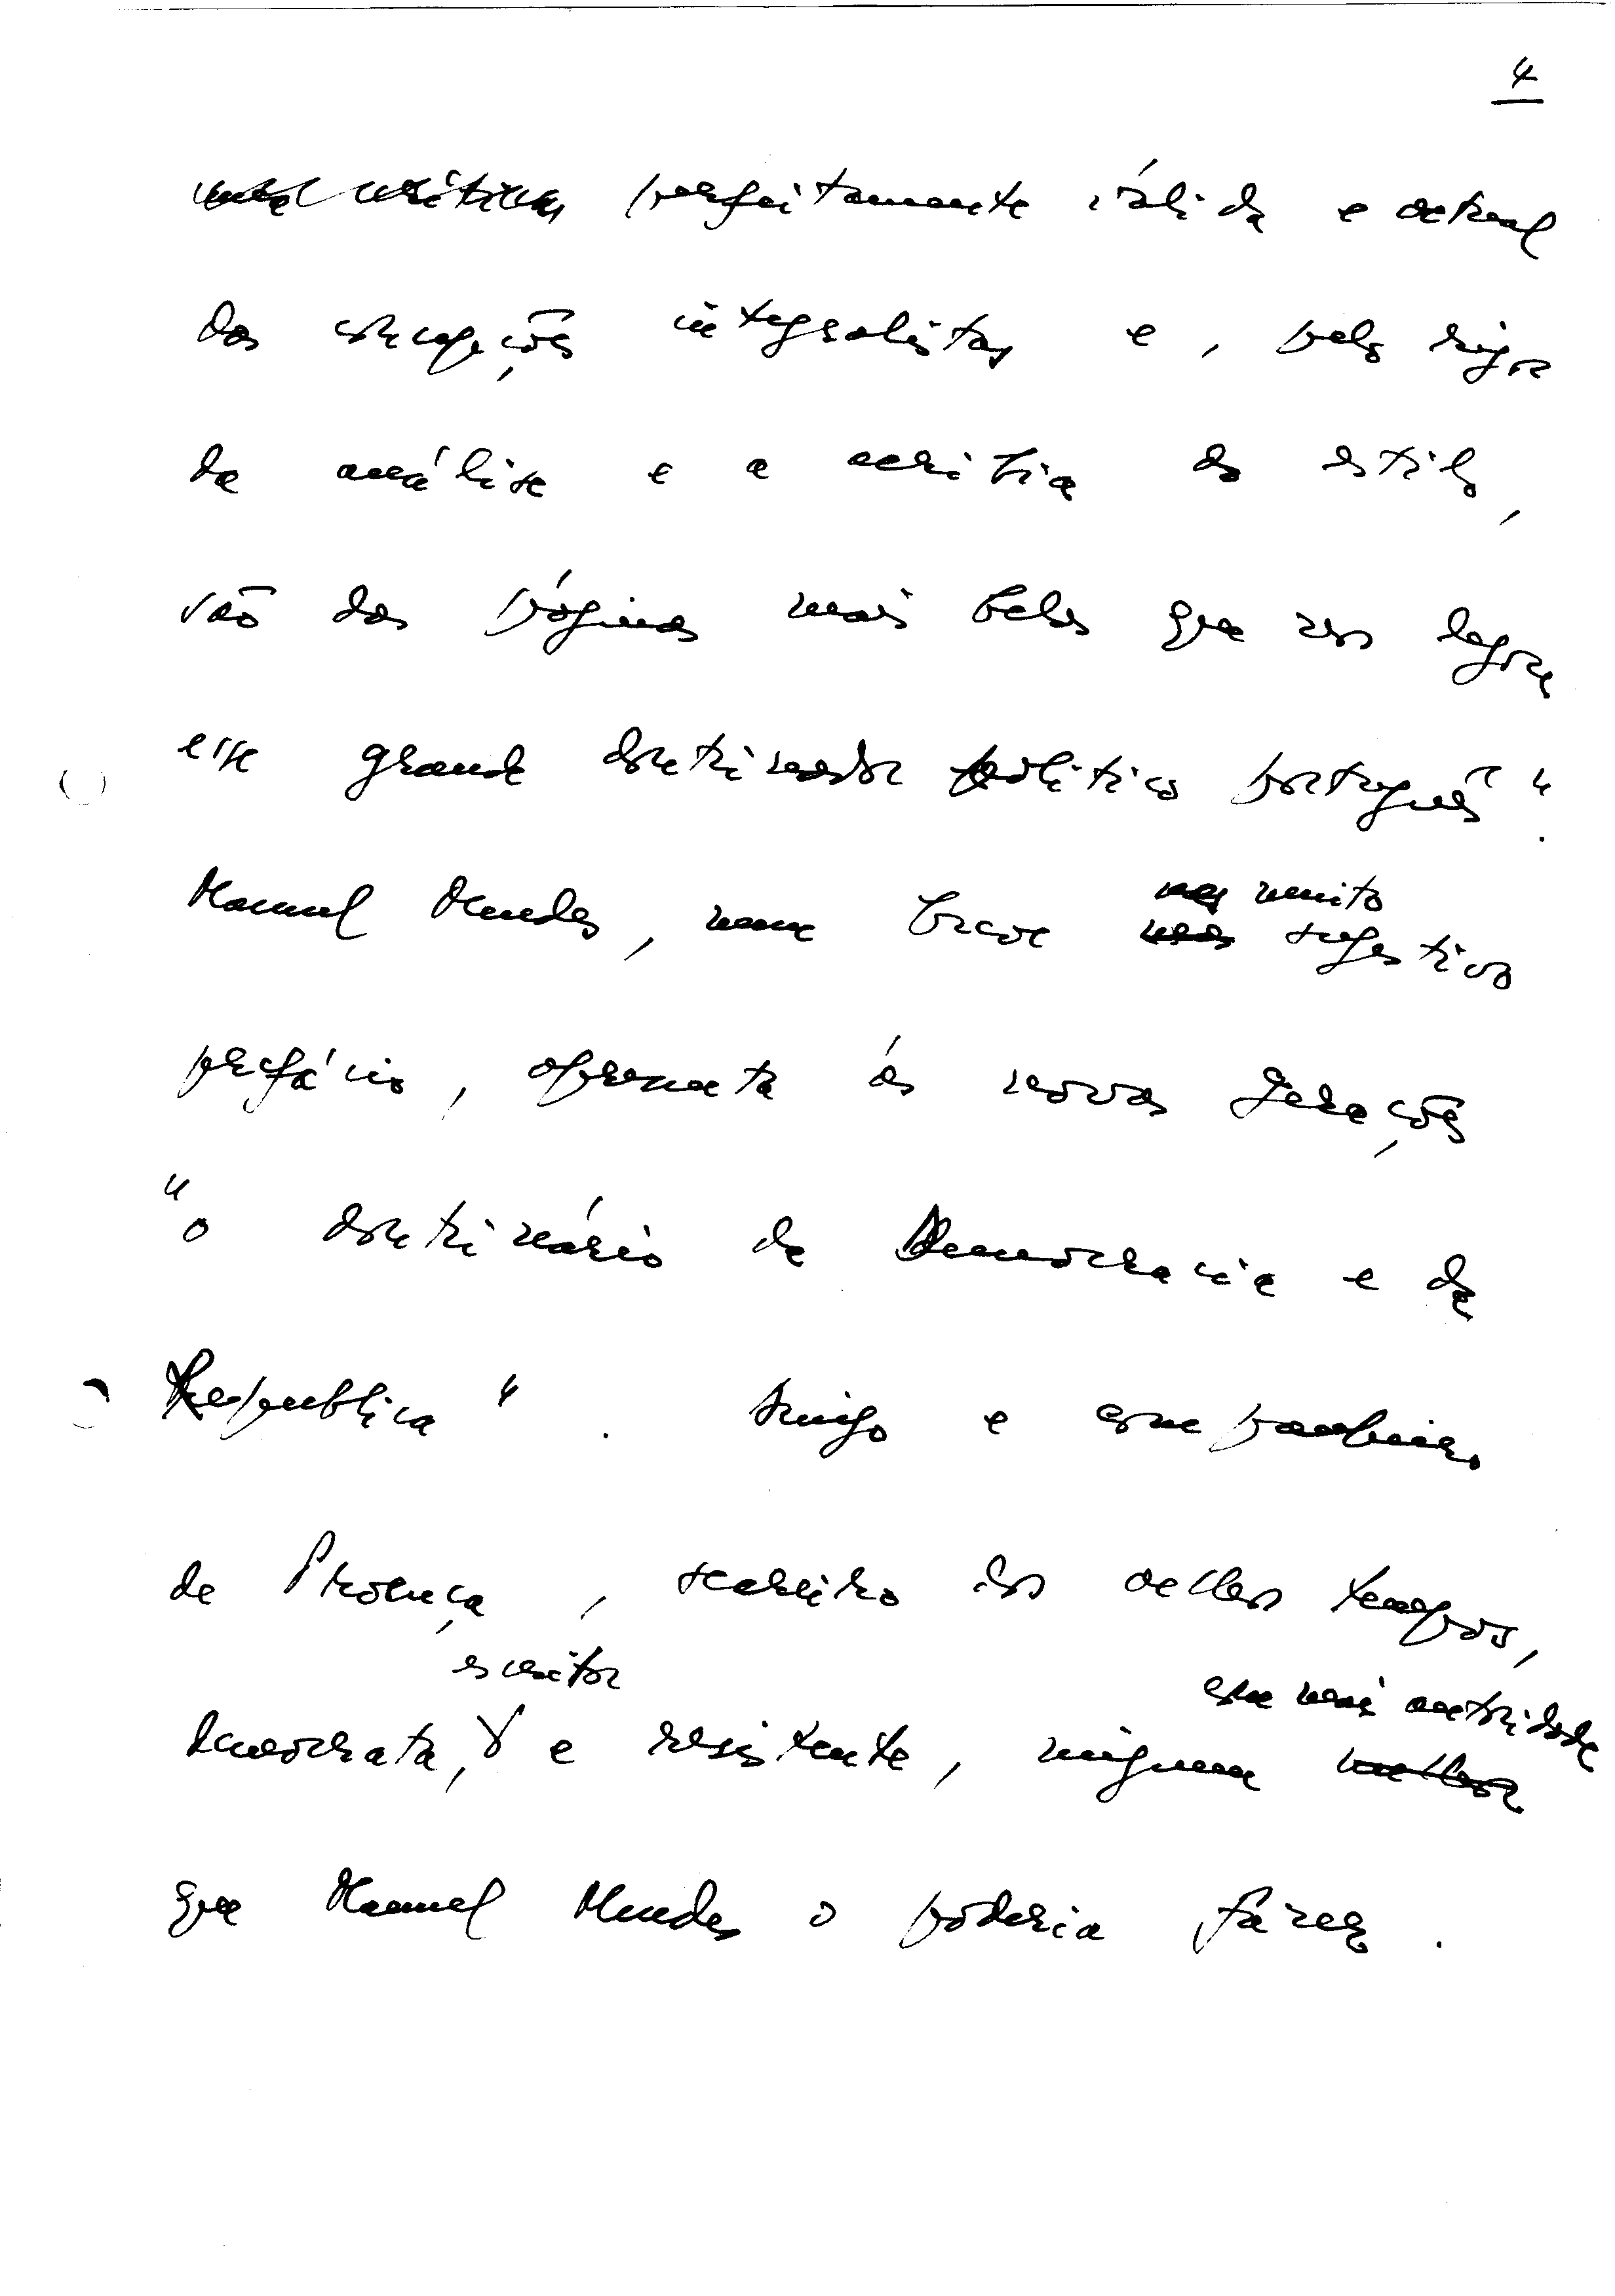 4
perfeitamente válida e actual
das concepções integralistas e, pelo rigor
da análise e a acribia do estilo,
são das páginas mais belas que nos legou
esse grande doutrinador político português".
Manuel Mendes, num breve mas muito sugestivo
prefácio, apresenta às novas gerações
"o doutrinário da Democracia e da
República". Amigo e companheiro
de Proença, seareiro dos velhos tempos,
democrata, escritor e resistente, ninguem com mais autoridade
que Manuel Mendes o poderia fazer.